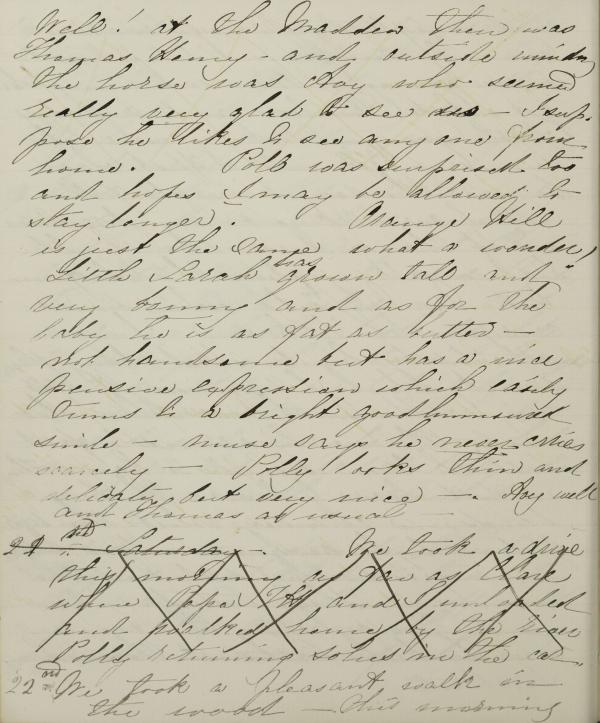 Well! at the Madden then was
Thomas Henry - and outside mindg
the horse was Hoy who seemed
really very glad to see us - I sup-
pose he likes to see any one from
home. Poll was surprised too
and hopes I may be allowed to
stay longer. Orange Hill
is just the same what a wonder!
Little Sarah has grown tall and
very bonny and as for the
baby he is as fat as butter -
not handsome but has a nice
pensive expression which easily
turns to a bright goodhumoured
smile - nurse says he never cries
scarcely - Polly looks thin and
delicate, but very nice -. Hoy well
and Thomas as usual -
Saturday - We took a drive
this morning as far as Clare
where Papa and I unloaded
and walked home by the river
Polly returning solus in the car.
22nd We took a pleasant walk in
the wood - this morning